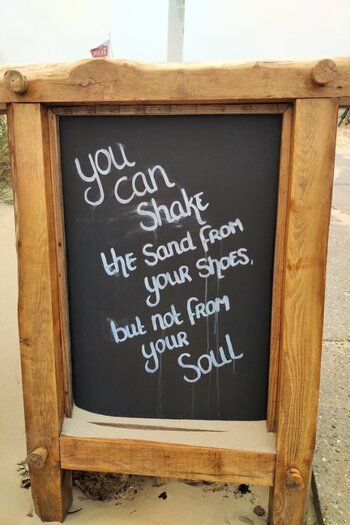 you
can
Shake
the Sand from
your Shoes,
but not from
your
Soul